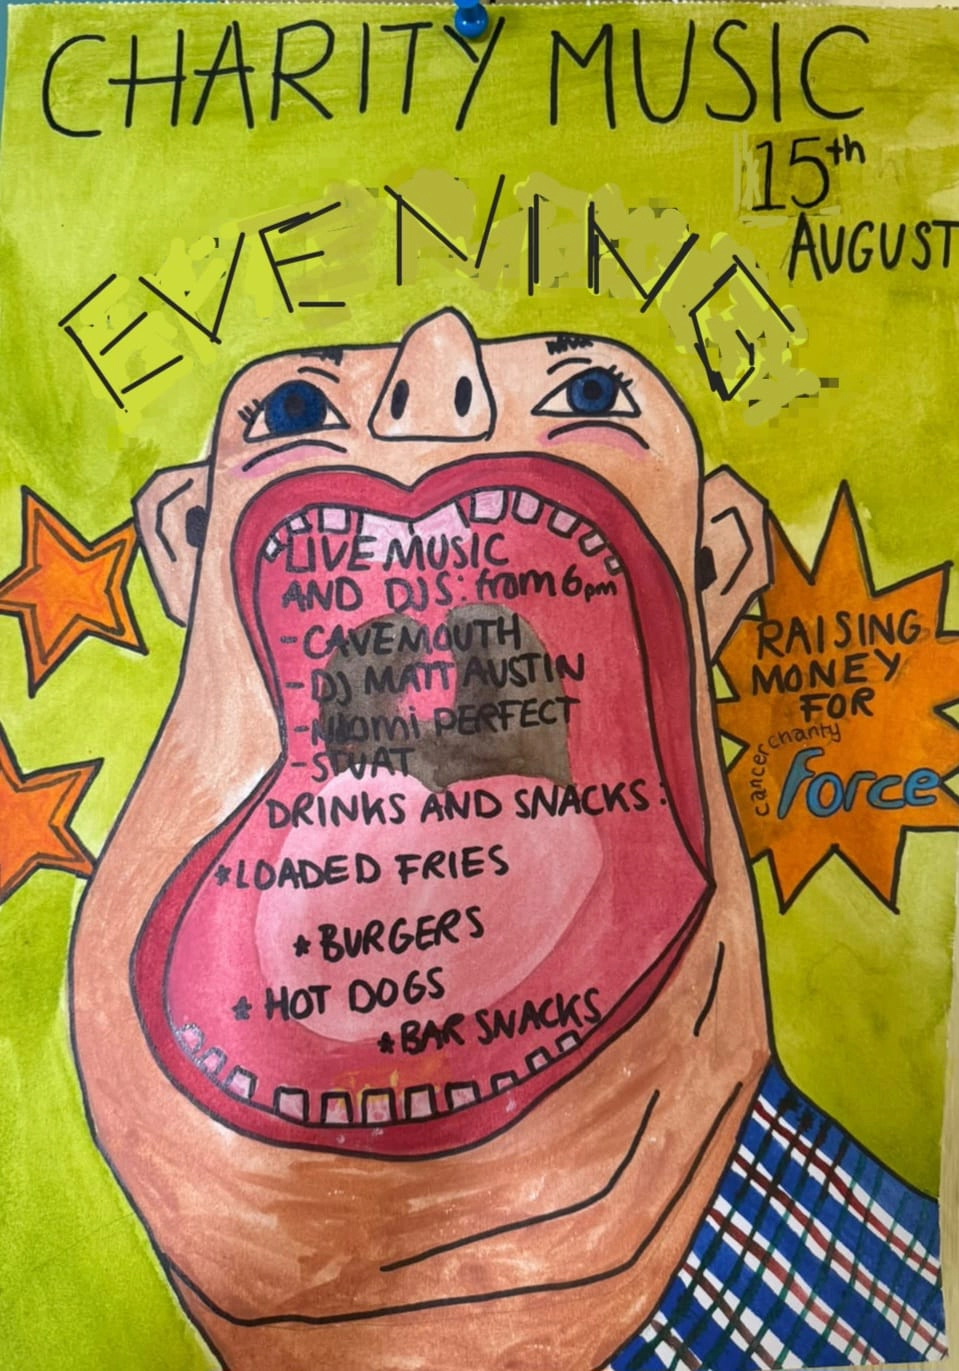 CHARITY MUSIC
15th
AUGUST
EVENING
LIVE MUSIC
AND DJS: from 6pm
- CAVEMOUTH
- DJ MATT AUSTIN
- NIomi PERFECT
- STUAT
DRINKS AND SNACKS:
* LOADED FRIES
* BURGERS
* HOT DOGS
* BAR SNACKS
RAISING
MONEY
FOR
cancer charity
Force